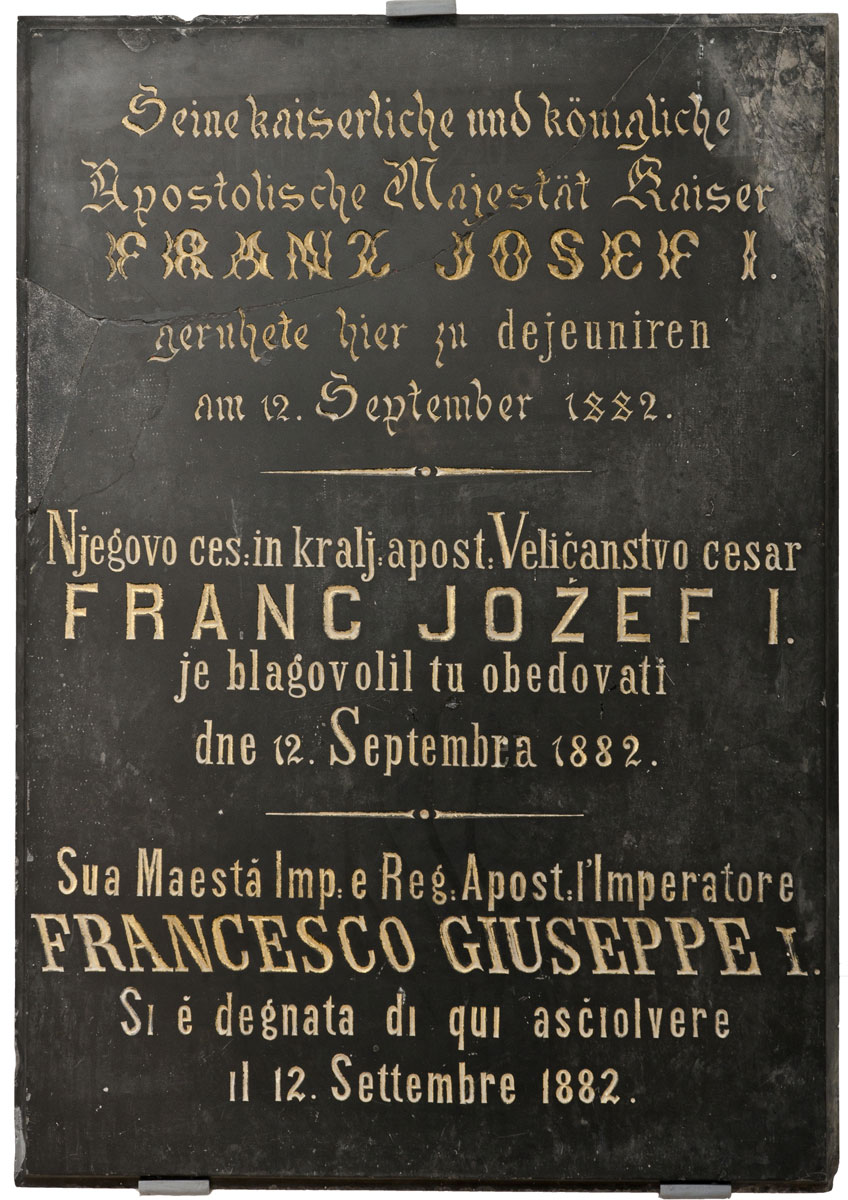 Seine kaiserliche und königliche
Apostolische Majestät Kaiser
FRANZ JOSEF I.
geruhete hier zu dejeuniren
am 12. September 1882.
Njegovo ces: in kralj: apost: Veličanstvo cesar
FRANC JOŽEF I.
je blagovolil tu obedovati
dne 12. Septembra 1882.
Sua Maestá Imp: e Reg: Apost: l'Imperatore
FRANCESCO GIUSEPPE I.
Si é degnata di qui asciolvere
il 12. Settembre 1882.